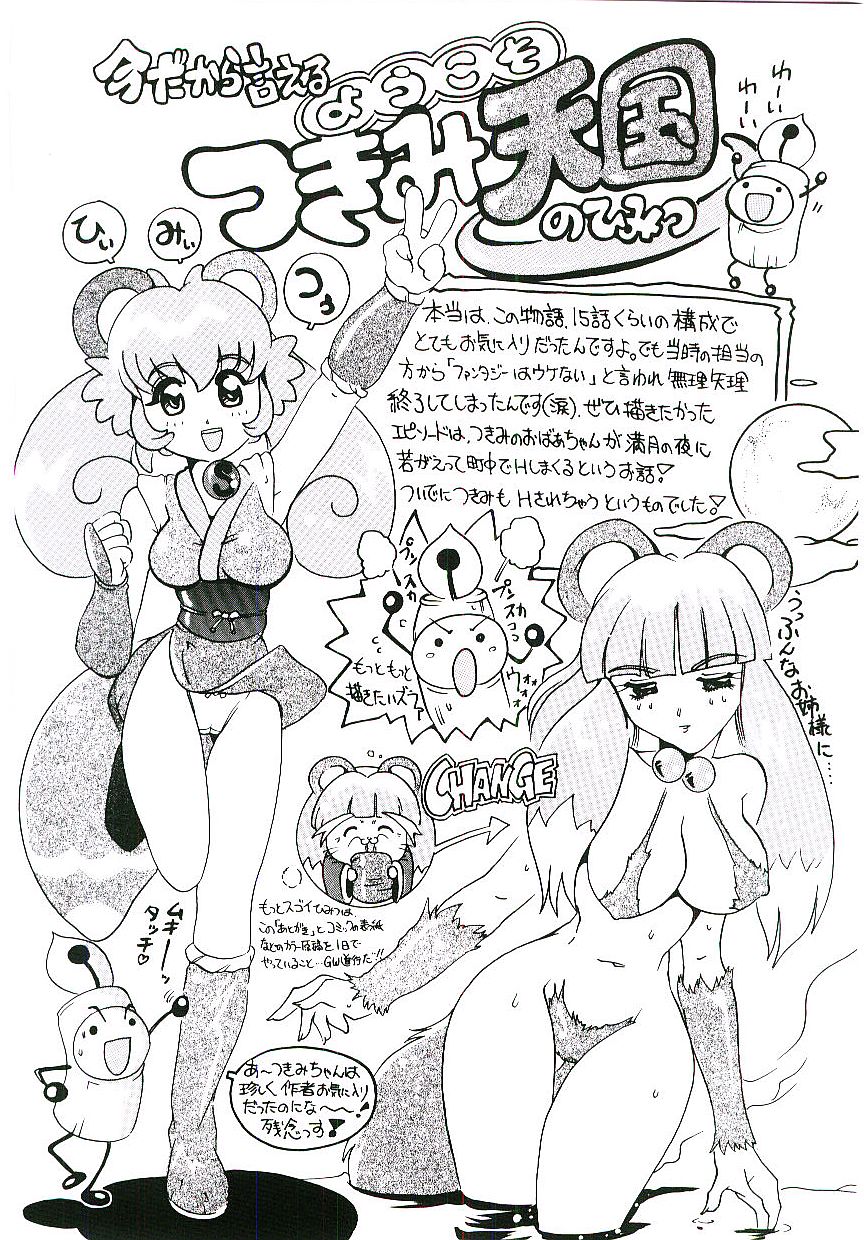 今だから言える
ようこそ
つきみ天国
のひみつ
わーい
わーい
ひぃ
みぃ
つぅ
本当は、この物語、15話くらいの構成で
とてもお気に入りだったんですよ。でも当時の担当の
方から「ファンタジーはウケない」と言われ無理矢理
終了してしまったんです(涙)。ぜひ描きたかった
エピソードは、つきみのおばあちゃんが満月の夜に
若がえって町中でHしまくるというお話!
ついでにつきみもHされちゃうというものでした!
プンスカ
プンスカ
もっともっと
描きたいズラァ
ウォォォォ
うっふんなお姉様に……
CHANGE
もっとスゴイひみつは、
この「あとがき」とコミックの表紙
などのカラー原稿を1日で
やっていること…GW進行だ!!
ムキーーッ
タッチ♡
あ〜つきみちゃんは
珍しく作者お気に入り
だったのにな〜〜!
残念っす!